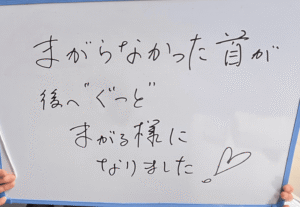 まがらなかった首が
後へ〝ぐっと〟
まがる様に
なりました